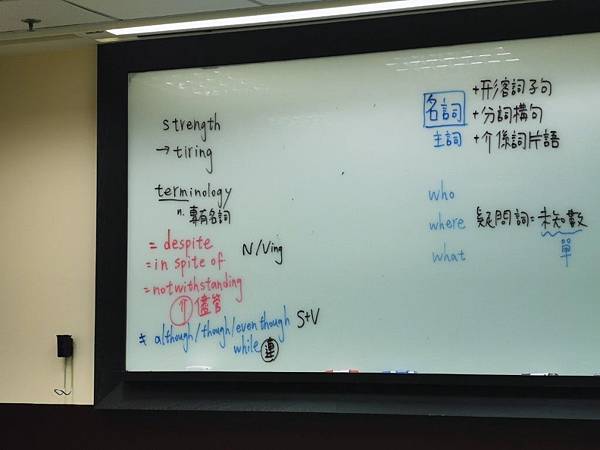 strength
→ tiring
terminology
n. 專有名詞
= despite N/Ving
= in spite of
= notwithstanding
介 儘管
≠ although/though/even though S+V
while 連
名詞 +形容詞子句
+分詞構句
主詞 +介係詞片語
who
where 疑問詞=未知數
what 單